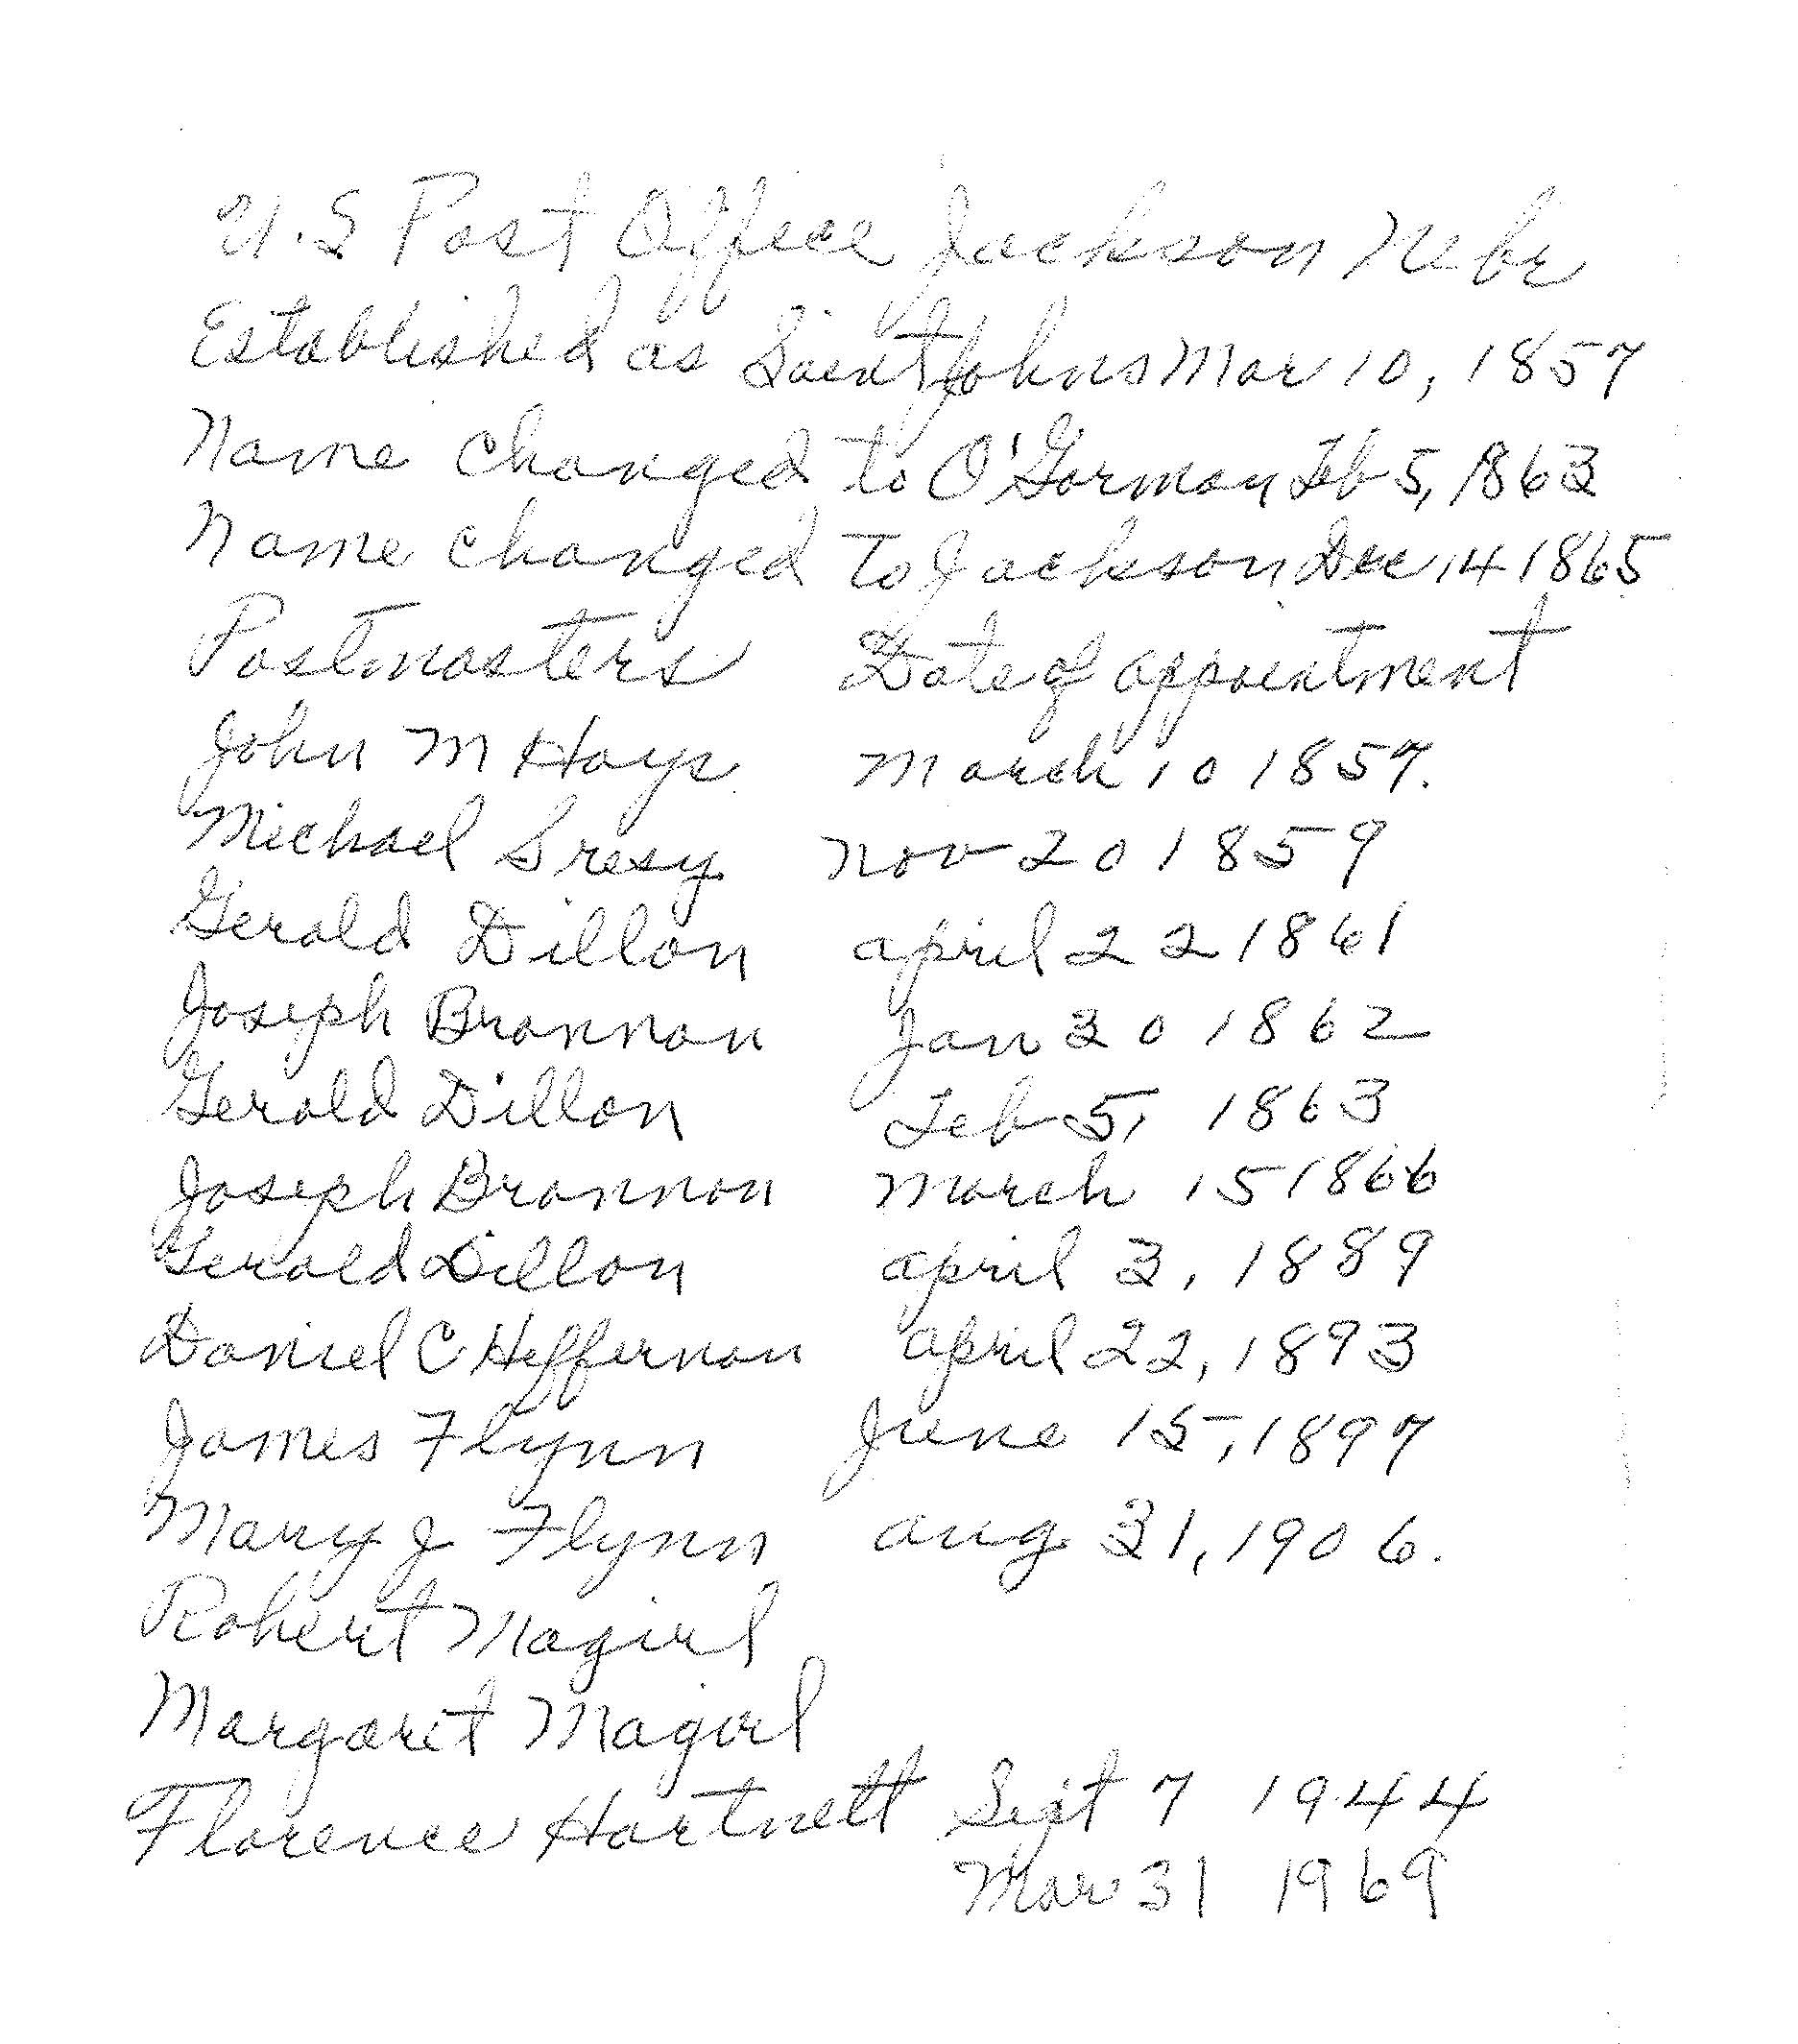 U.S Post Office Jackson Nebr
Established as Saint Johns Mar 10, 1857
Name changed to O'Gorman Feb 5, 1863
Name changed to Jackson Dec 14 1865
Postmasters Date of appointment
John M Hays March 10 1857.
Michael Nov 20 1859
Gerald Dillon April 22 1861
Joseph Brannan Jan 30 1862
Gerald Dillon Feb 5, 1863
Joseph Brannon March 15 1866
Gerald Dillon April 3, 1889
Daniel C Heffernan April 22, 1893
James Flynn June 15, 1897
Mary J Flynn Aug 31, 1906.
Robert Magirl
Margaret Magirl
Florence Hartnett Sept 7 1944
Mar 31 1969